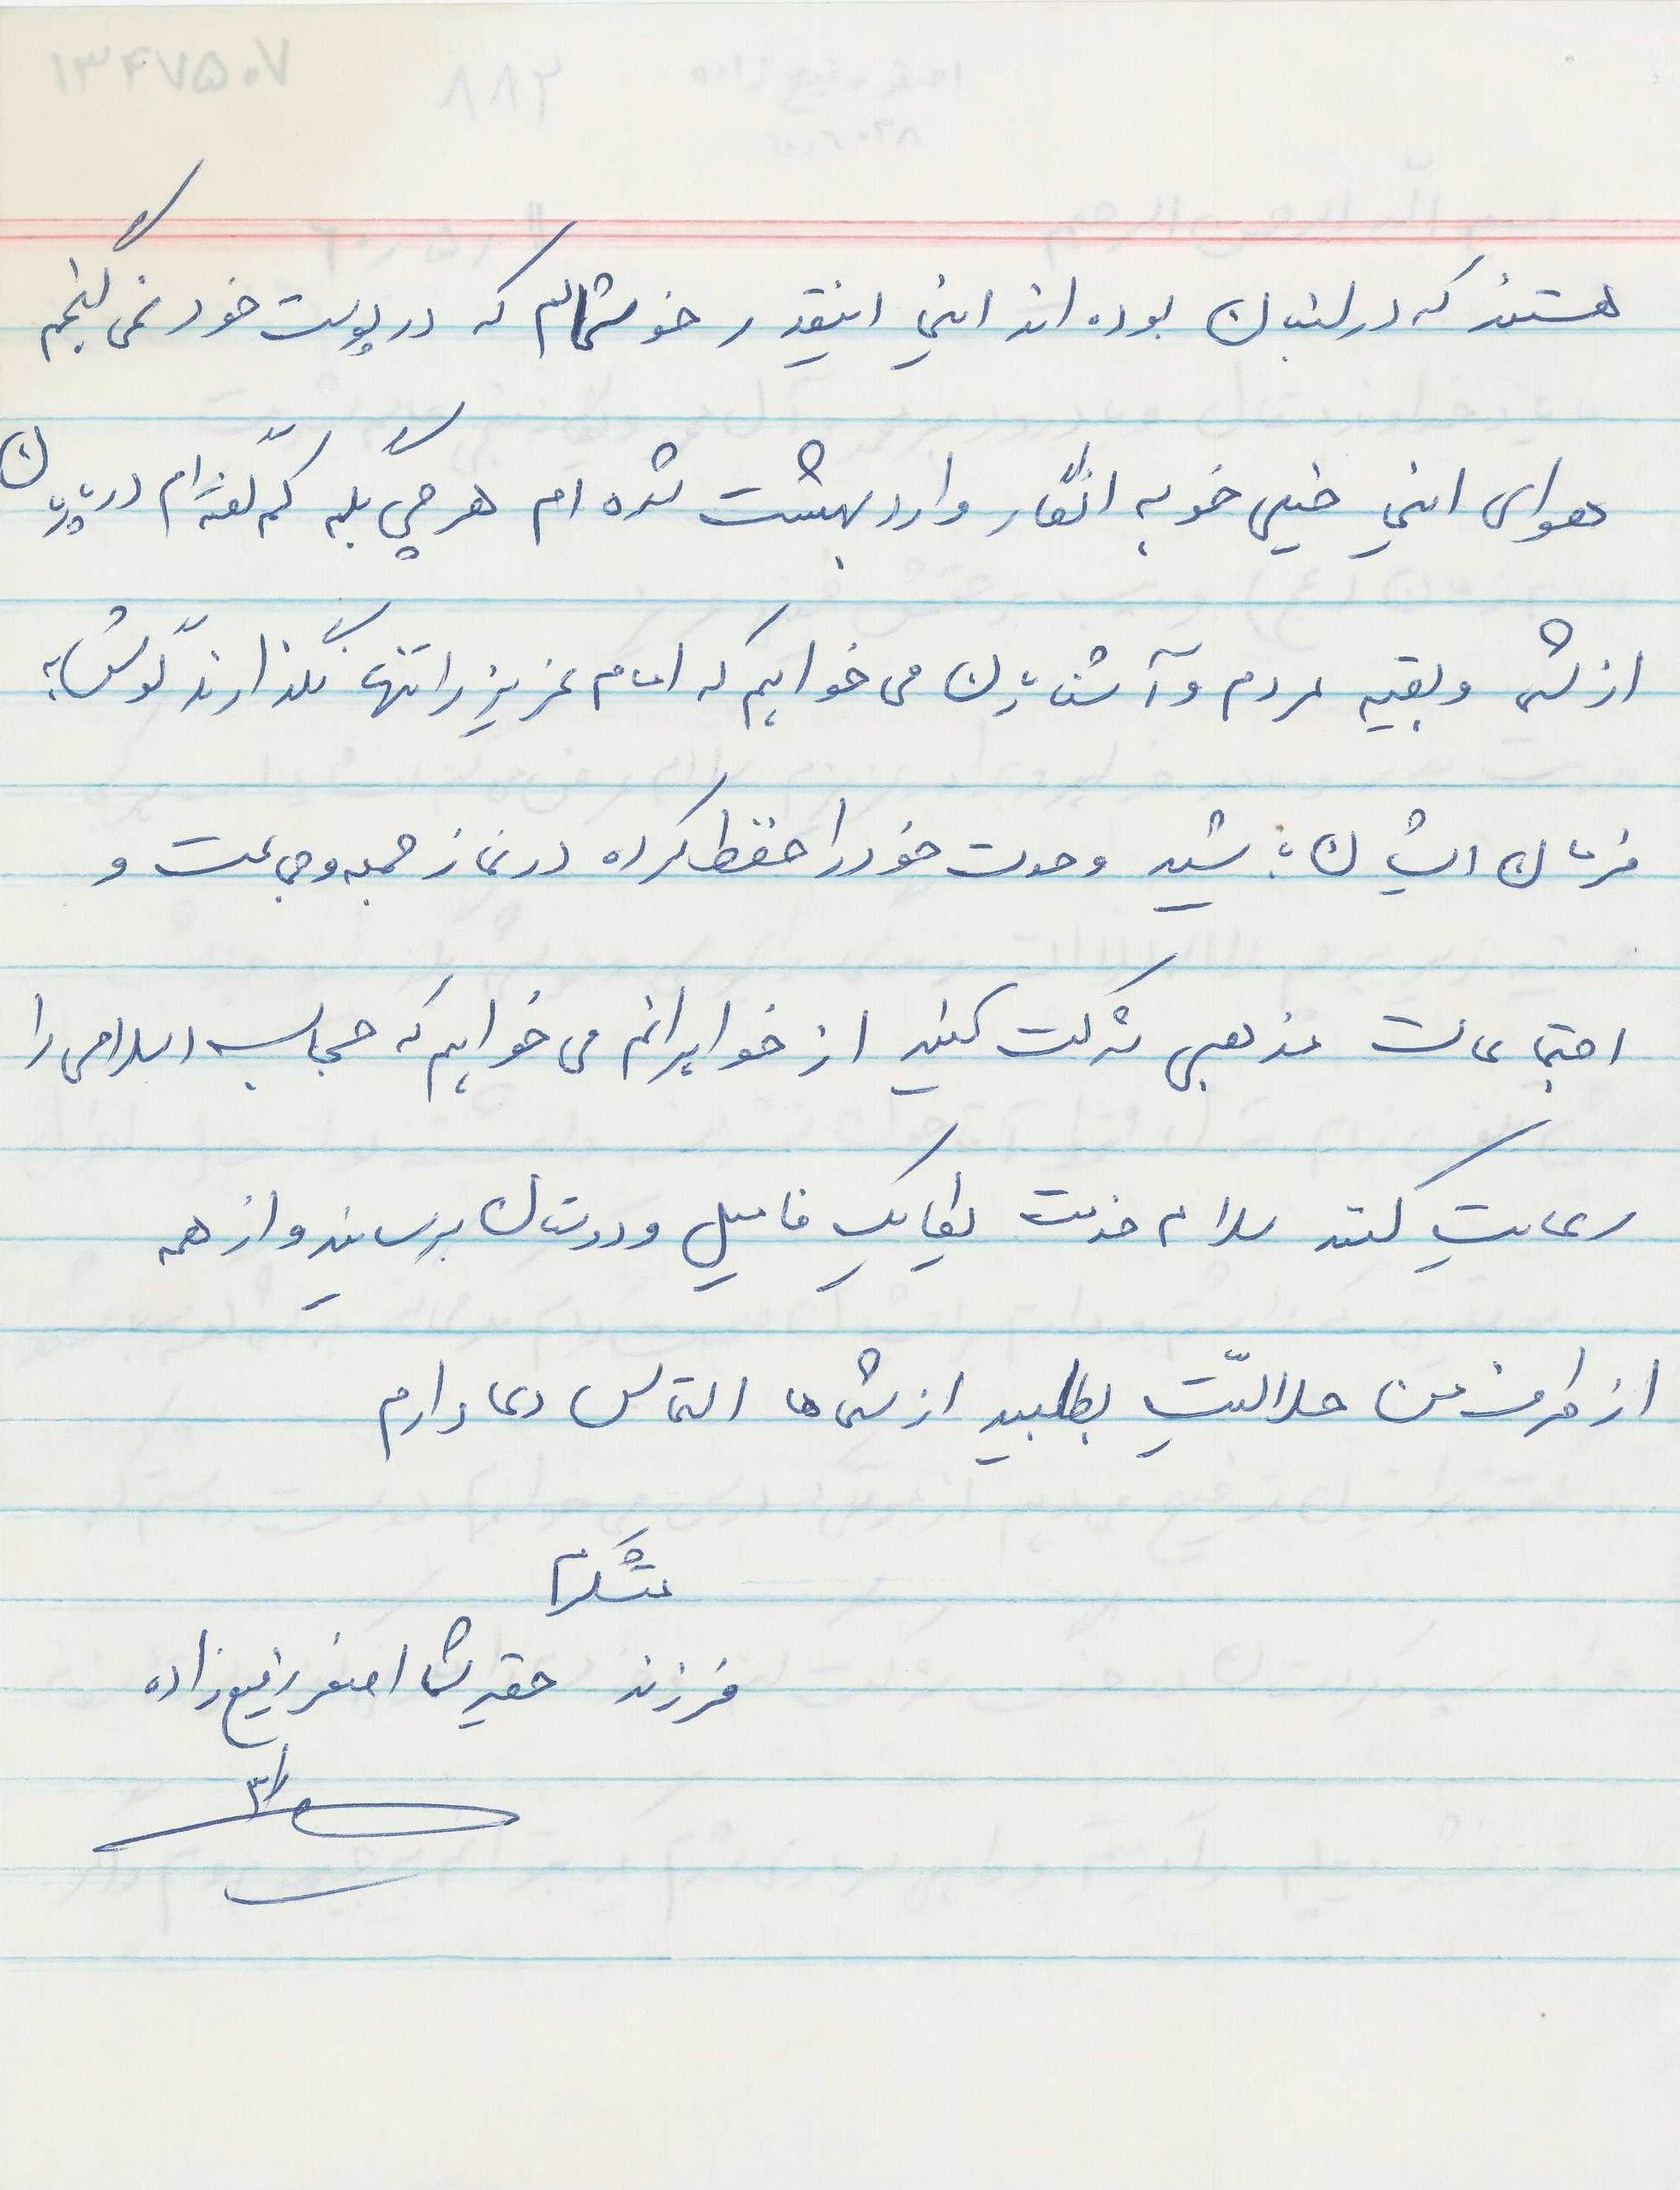 هستند که در لبنان بوده اند اینجا اینقدر خوشحالم که در پوست خود نمی گنجم
هوای اینجا خیلی خوبه انگار وارد بهشت شده ام هر چی بگم کم گفته ام
از شما و بقیه مردم و آشنایان می خواهم که امام عزیز را تنها نگذارند گوش به
فرمان ایشان باشید وحدت خود را حفظ کرده در نماز جمعه و جماعت و
اجتماعات مذهبی شرکت کنید از خواهرانم می خواهم که حجاب اسلامی را
رعایت کنند سلام خدمت یکایک فامیل و دوستان برسانید و از همه
از طرف من حلالیّت بطلبید از شما ها التماس دعا دارم
متشکرم
فرزند حقیر شما اصغر رفیع زاده